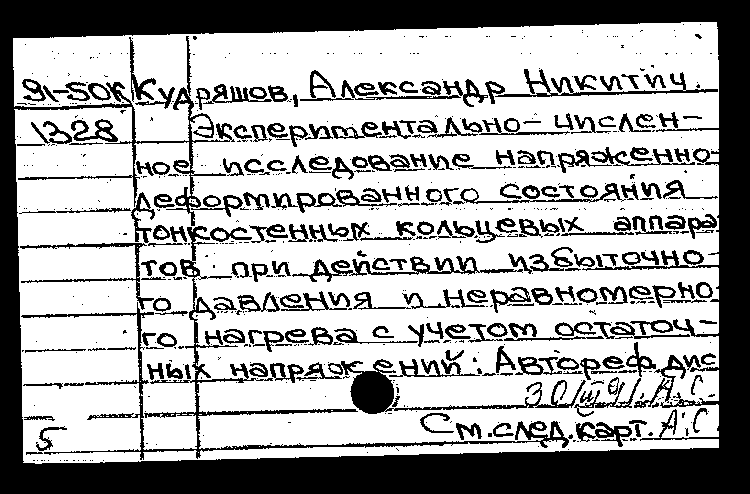 91-50К Кудряшов, Александр Никитич.
1328 Экспериментально-числен-
ное исследование напряженно-
деформированного состояния
тонкостенных кольцевых аппара
тов при действии избыточно-
го давления и неравномерно
го нагрева с учетом остаточ-
ных напряжений: Автореф. дис
30/III 91. А.С.
5 См. след. карт. А.С.